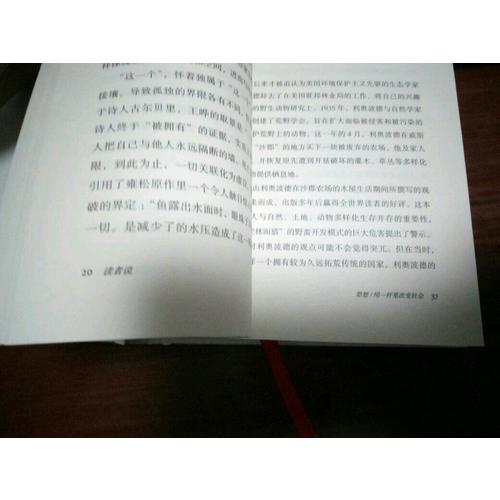 “这一个”，怀着独属于“这一个
接壤。导致孤独的界限各有不同，
于诗人古尔贝里，王晔的取景是“
诗人终于“被拥有”的证据，实质
人把自己与他人永远隔断的墙，
，到此为止，一切关联化为虚
引用了雍松原作里一个令人触目
破的界定：“鱼露出水面时，眼珠
一切。是减少了的水压造成了这一
20 读者说
后来才被追认为美国环境保护主义先驱的生态学家
德辞去了在美国联邦林业局的工作，将自己的兴趣
的野生动物研究上。1935年，利奥波德与自然学家
创建了荒野学会，旨在扩大面临被侵害和被污染的
护荒野上的动物。这一年的4月，利奥波德在威斯
“沙郡”的地方买下一块被废弃的农场，他及家人
，并恢复原先遭到开垦破坏的灌木、草丛等多样化
提供栖息地。
由利奥波德在沙郡农场的木屋生活期间所撰写的观
集而成，出版多年后赢得全世界读者的好评。这本
人与自然、土地、动物多样化生存并存的重要性，
林而猎”的野蛮开发模式的巨大危害提出了警示。
利奥波德的观点可能不会觉得突兀。但在当时，
一个拥有较为久远拓荒传统的国家，利奥波德的
思想：用一杆笔改变社会 37